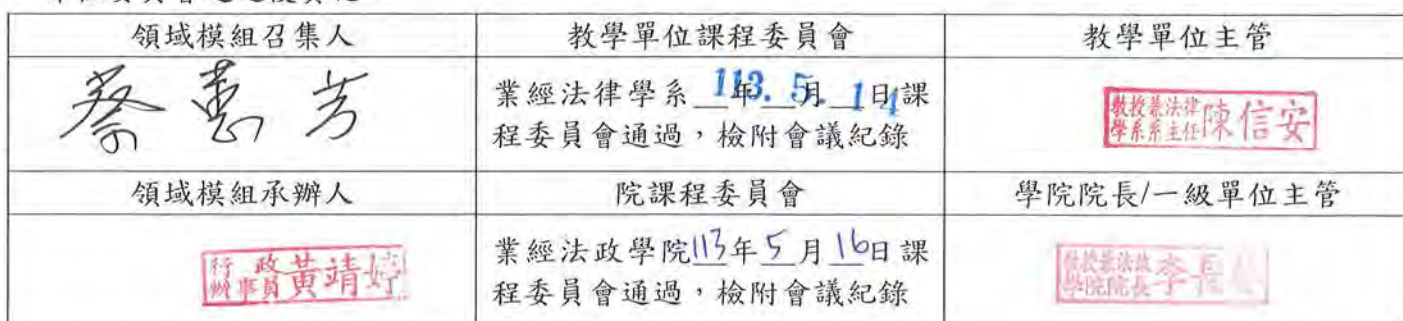 領域模組召集人
教學單位課程委員會
教學單位主管
蔡蕙芳
業經法律學系113年5月14日課
程委員會通過，檢附會議紀錄
教授兼法律
學系系主任
陳信安
領域模組承辦人
院課程委員會
學院院長/一級單位主管
行政
辦事員
黃靖婷
業經法政學院113年5月16日課
程委員會通過，檢附會議紀錄
教授兼法政
學院院長
李長